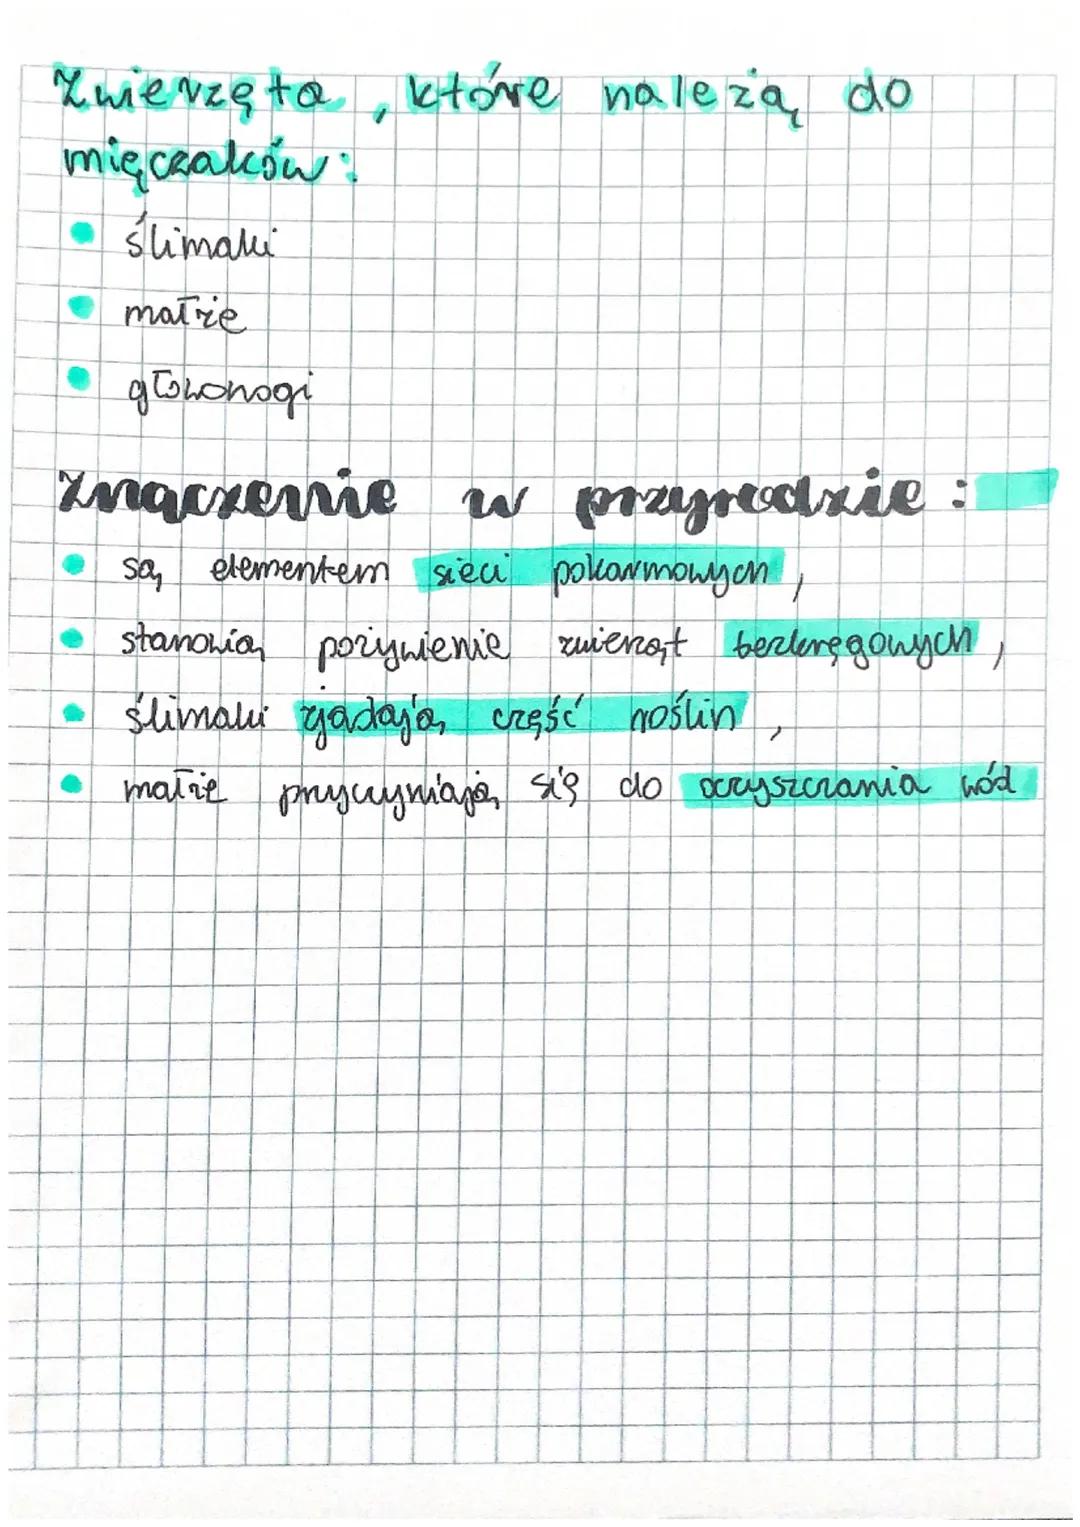 Zwierzęta, które należą do
mięczaków:
ślimaki
małże
głowonogi
Znaczenie w przyrodzie:
są elementem sieci pokarmowych,
stanowią pożywienie zwierząt bezkręgowych,
ślimaki zjadają część roślin,
małże przyczyniają się do oczyszczania wód